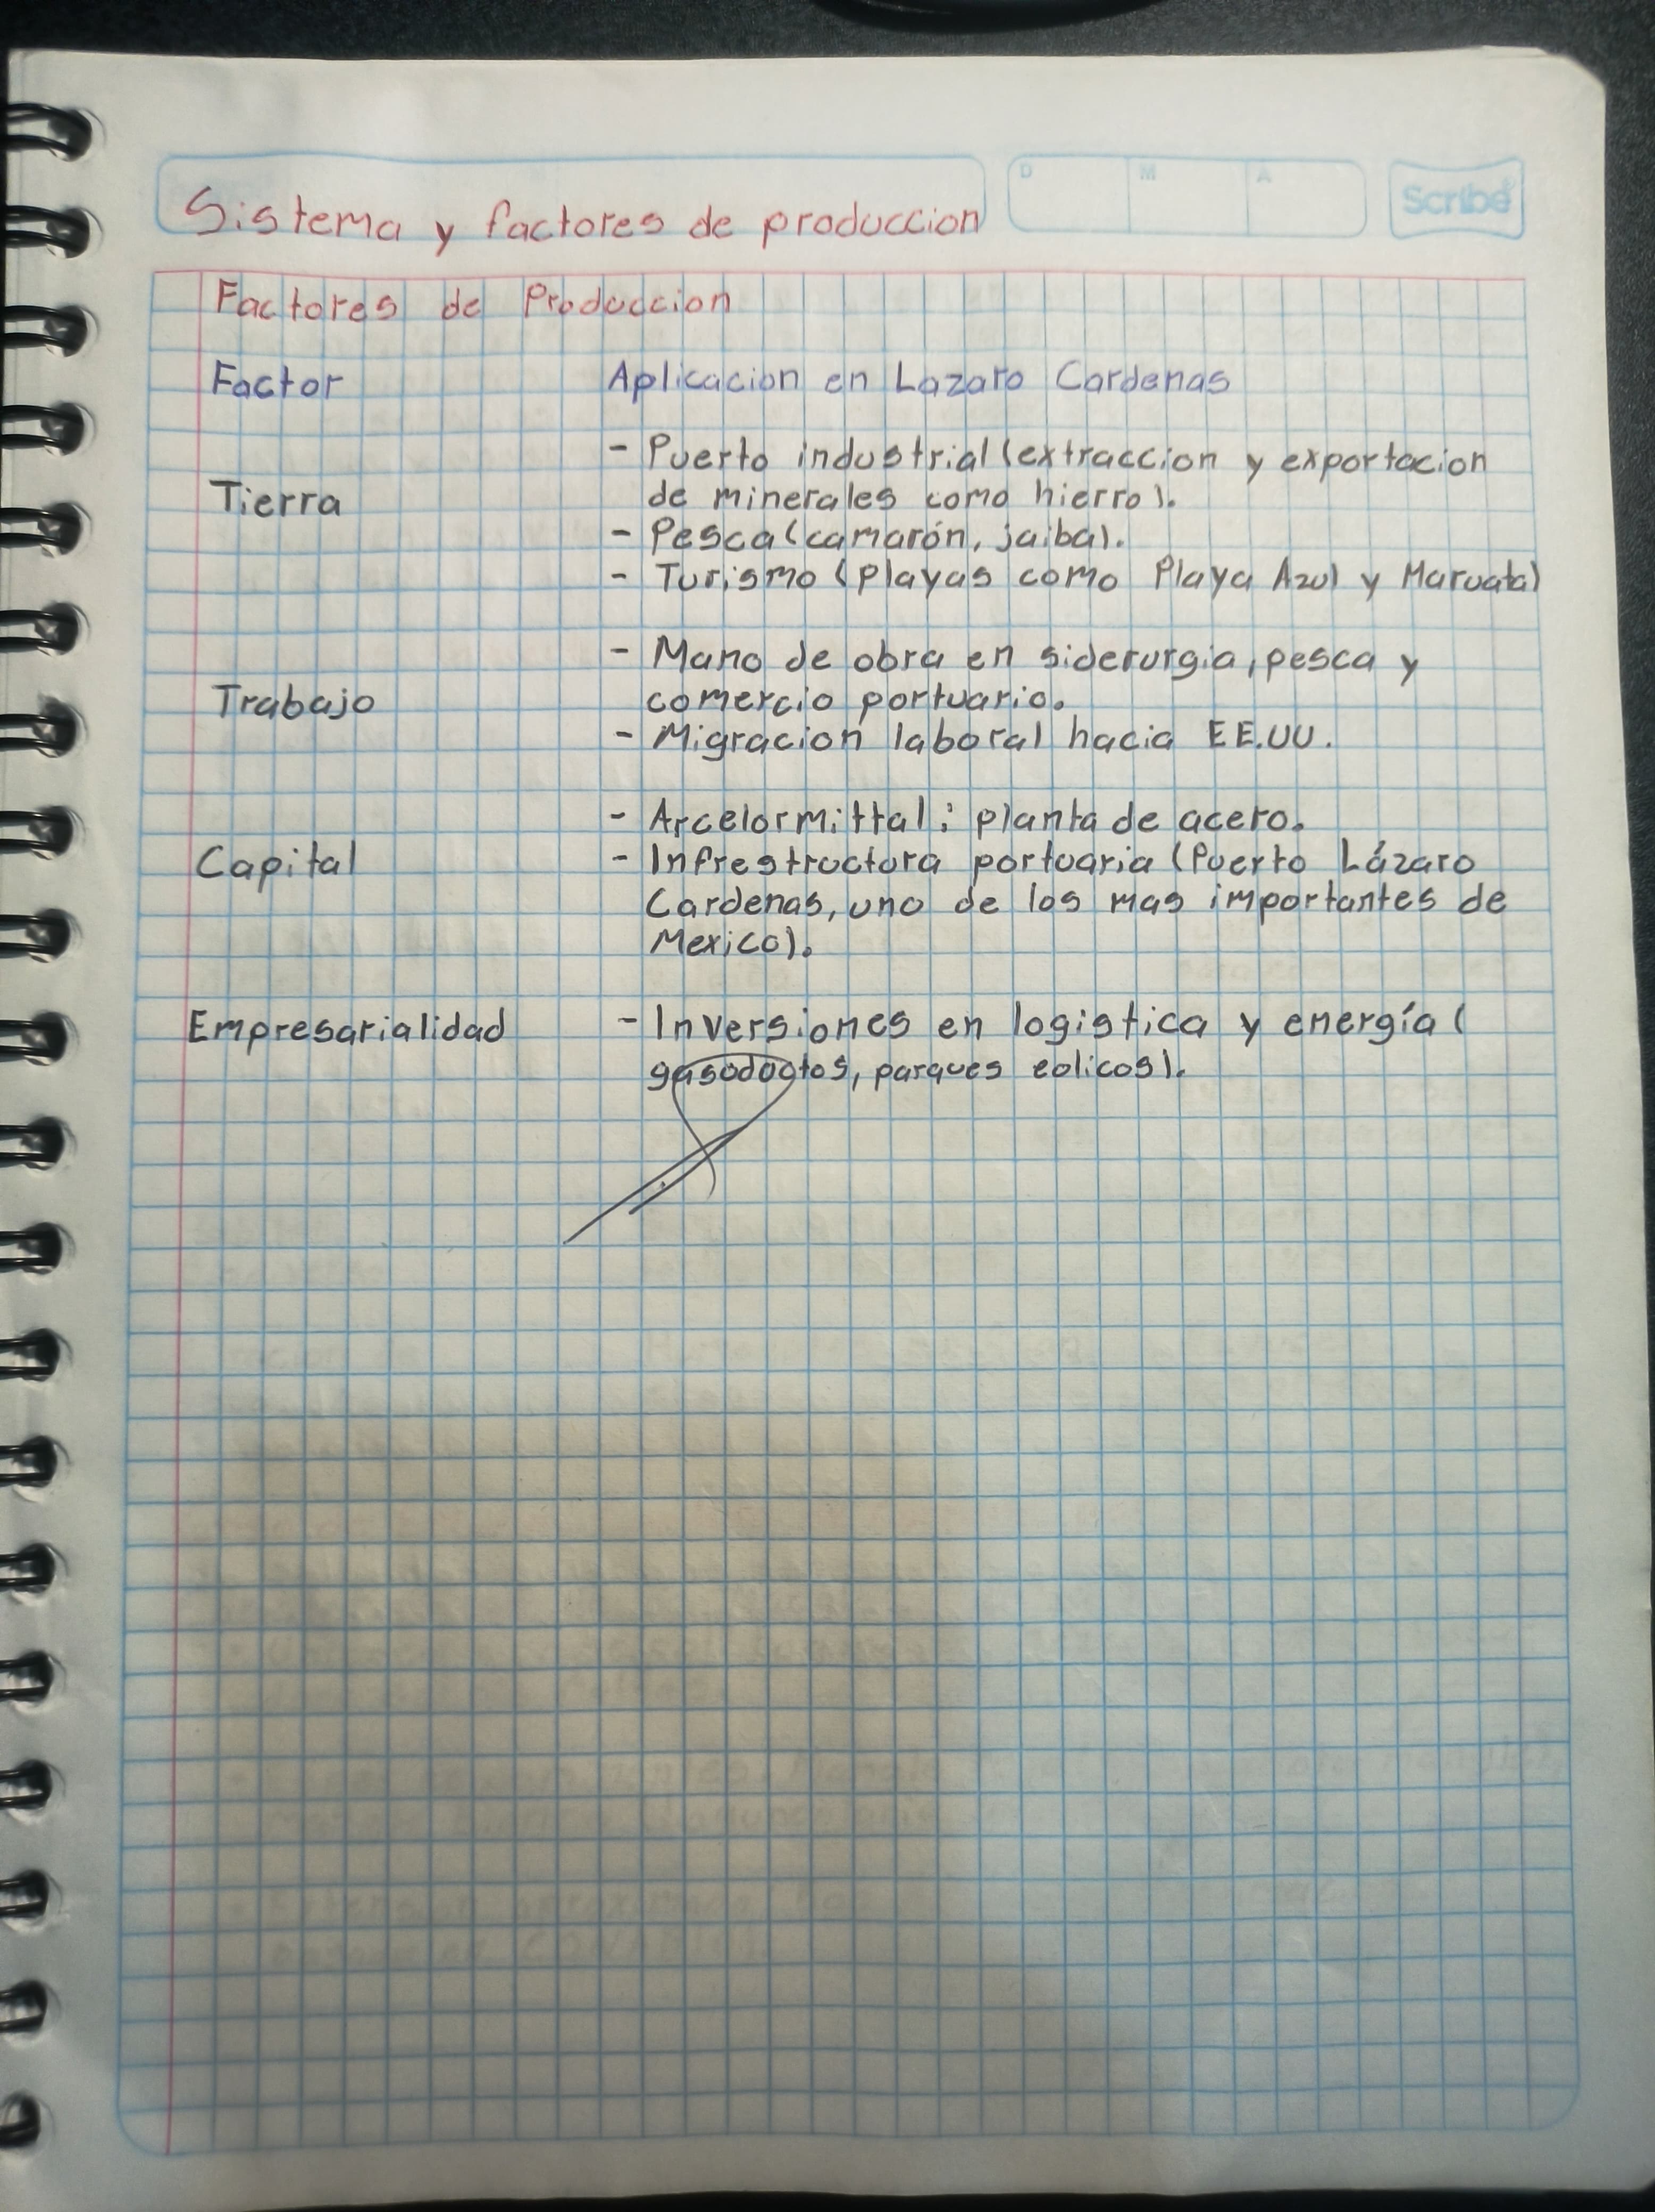 D M A
Scribe
Sistema y factores de produccion
Factores de Produccion
Factor Aplicacion en Lazaro Cardenas
- Puerto industrial (extraccion y exportacion
Tierra de minerales como hierro).
- Pesca (camarón, jaiba).
- Turismo (playas como Playa Azul y Maruata)
- Mano de obra en siderurgia, pesca y
Trabajo comercio portuario.
- Migracion laboral hacia EE.UU.
- Arcelormittal: planta de acero.
Capital - Infrestructura portuaria (Puerto Lázaro
Cardenas, uno de los mas importantes de
Mexico).
Empresarialidad - Inversiones en logistica y energía (
gasoductos, parques eolicos).